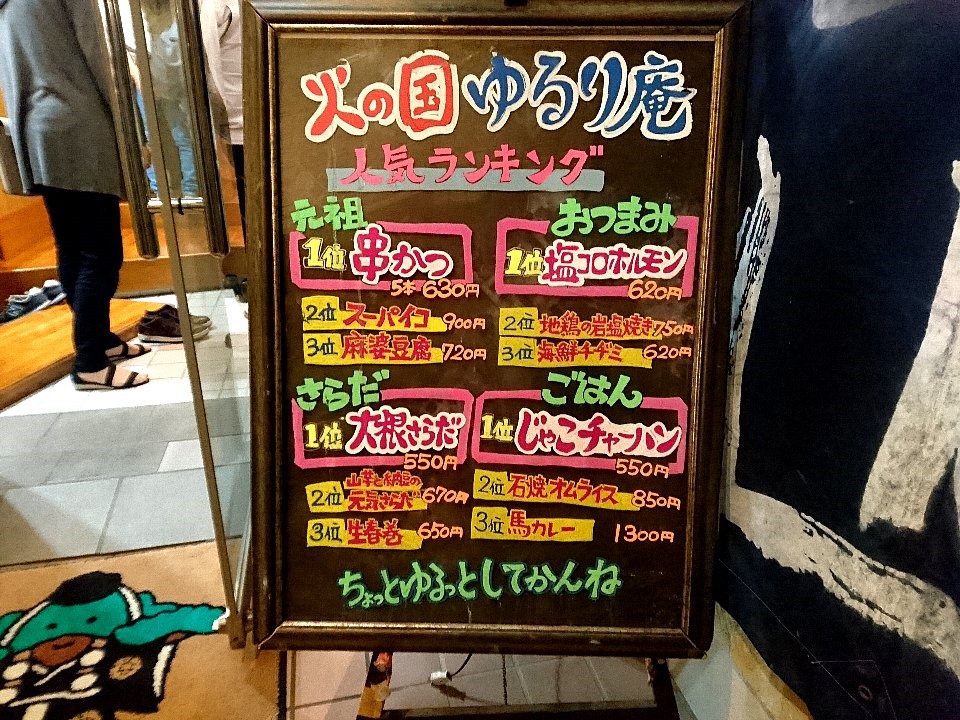 火の国ゆるり庵
人気ランキング
元祖
1位 串かつ
5本 630円
2位 スーパイコ 900円
3位 麻婆豆腐 720円
おつまみ
1位 塩コロホルモン
620円
2位 地鶏の岩塩焼き 750円
3位 海鮮チヂミ 620円
さらだ
1位 大根さらだ
550円
2位 山芋と納豆の
元気さらだ 670円
3位 生春巻 650円
ごはん
1位 じゃこチャーハン
550円
2位 石焼オムライス 850円
3位 馬カレー 1300円
ちょっとゆるっとしてかんね